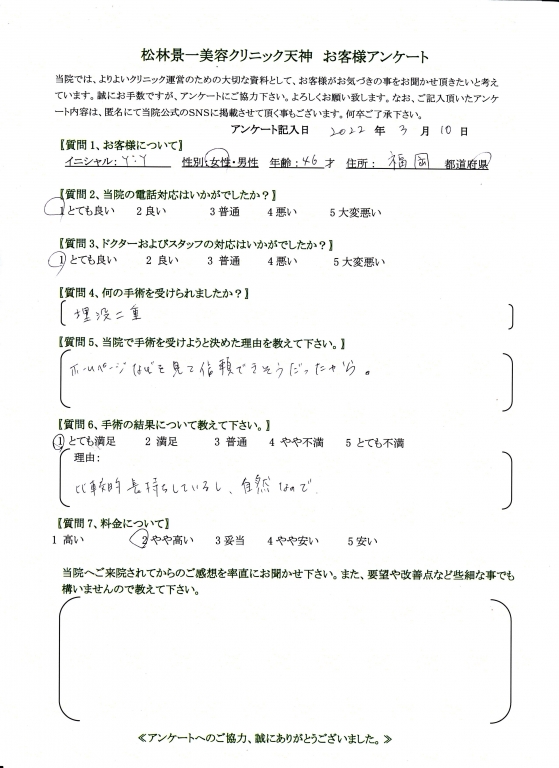 松林景一美容クリニック天神　お客様アンケート
当院では、よりよいクリニック運営のための大切な資料として、お客様がお気づきの事をお聞かせ頂きたいと考え
ています。誠にお手数ですが、アンケートにご協力下さい。よろしくお願い致します。なお、ご記入頂いたアンケ
ート内容は、匿名にて当院公式のSNSに掲載させて頂く事もございます。何卒ご了承下さい。
アンケート記入日　2022 年 3 月 10 日
【質問1、お客様について】
イニシャル： Y.Y　性別：女性・男性　年齢：46 才　住所： 福岡　都道府県
【質問2、当院の電話対応はいかがでしたか？】
1 とても良い　2 良い　3 普通　4 悪い　5 大変悪い
【質問3、ドクターおよびスタッフの対応はいかがでしたか？】
1 とても良い　2 良い　3 普通　4 悪い　5 大変悪い
【質問4、何の手術を受けられましたか？】
埋没二重
【質問5、当院で手術を受けようと決めた理由を教えて下さい。】
ホームページなどを見て信頼できそうだったから。
【質問6、手術の結果について教えて下さい。】
1 とても満足　2 満足　3 普通　4 やや不満　5 とても不満
理由：
比較的長持ちしているし、自然なので
【質問7、料金について】
1 高い　2 やや高い　3 妥当　4 やや安い　5 安い
当院へご来院されてからのご感想を率直にお聞かせ下さい。また、要望や改善点など些細な事でも
構いませんので教えて下さい。
≪アンケートへのご協力、誠にありがとうございました。≫